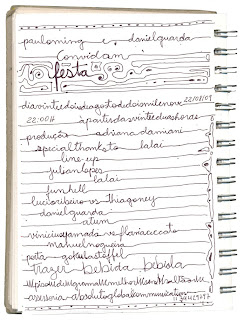 pauloming e danielguarda
Convidam
festa
diavinteedoisdeagostodedoismilenove 22/08/09
22:00H àpartirdasvinteeduashoras
produção adriana damiani
special thanks to lalai
line-up
julianlopes
lalai
fun hell
lucioribeiro vs thiagoney
danielguarda
atum
viniciusyamada vs flaviaciccato
manuelnogueira
porta gokulastéffel
trazer bebida bebida
assessoria-absolutaglobalcommunications